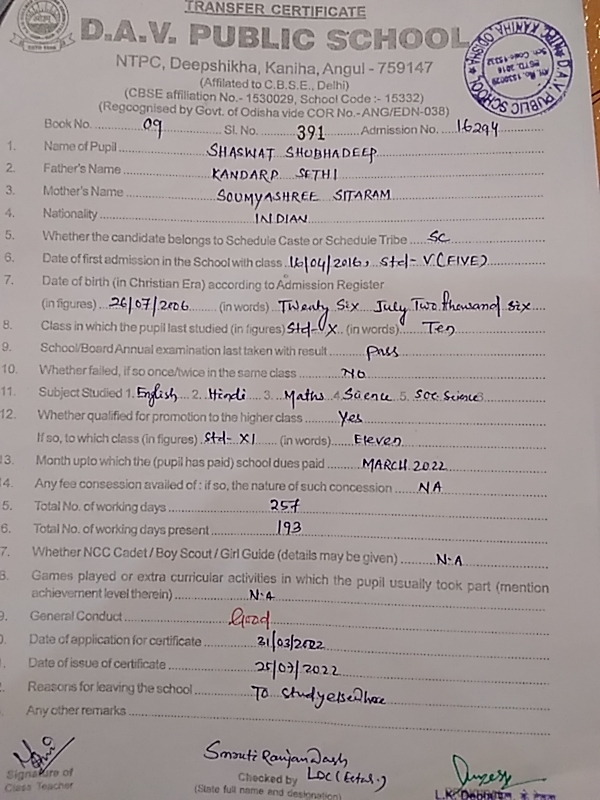 TRANSFER CERTIFICATE
D.A.V. PUBLIC SCHOOL
NTPC, Deepshikha, Kaniha, Angul - 759147
(Affiliated to C.B.S.E., Delhi)
(CBSE affiliation No.- 1530029, School Code :- 15332)
(Regcognised by Govt. of Odisha vide COR No.-ANG/EDN-038)
Book No. 09 Sl. No. 391 Admission No. 16294
1. Name of Pupil SHASWAT SHUBHADEEP
2. Father's Name KANDARP SETHI
3. Mother's Name SOUMYASHREE SITARAM
4. Nationality INDIAN
5. Whether the candidate belongs to Schedule Caste or Schedule Tribe SC
6. Date of first admission in the School with class 16/04/2016, Std- V (FIVE)
7. Date of birth (in Christian Era) according to Admission Register
(in figures) 26/07/2006 (in words) Twenty Six July Two thousand six
8. Class in which the pupil last studied (in figures) Std- X (in words) Ten
9. School/Board Annual examination last taken with result Pass
10. Whether failed, if so once/twice in the same class NO
11. Subject Studied 1. English 2. Hindi 3. Maths 4. Science 5. Soc. Science
12. Whether qualified for promotion to the higher class Yes
If so, to which class (in figures) Std- XI (in words) Eleven
13. Month upto which the (pupil has paid) school dues paid MARCH 2022
4. Any fee consession availed of : if so, the nature of such concession NA
5. Total No. of working days 257
6. Total No. of working days present 193
7. Whether NCC Cadet / Boy Scout / Girl Guide (details may be given) N.A
8. Games played or extra curricular activities in which the pupil usually took part (mention
achievement level therein) N.A
9. General Conduct Good
Date of application for certificate 31/03/2022
Date of issue of certificate 25/07/2022
Reasons for leaving the school To study elsewhere
Any other remarks
Smruti Ranjan Dash
Signature of
Class Teacher
Checked by LDC
(State full name and designation)